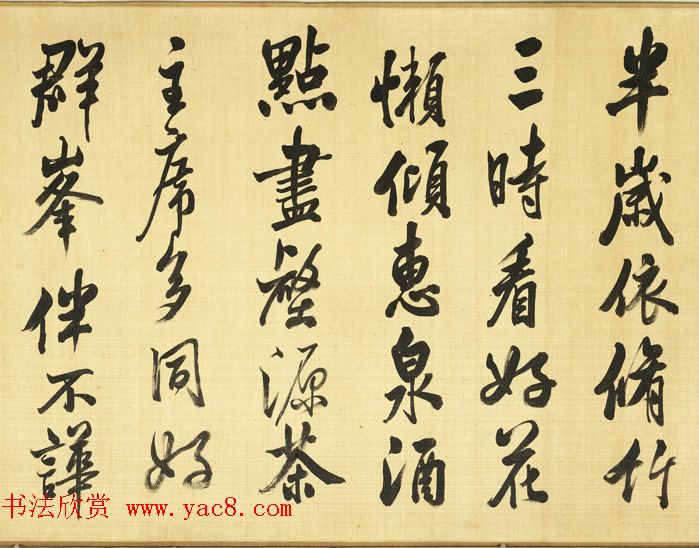 半歲依脩竹
三時看好花
懶傾惠泉酒
點盡壑源茶
主席多同好
群峯伴不譁
书法欣赏 www.yac8.com